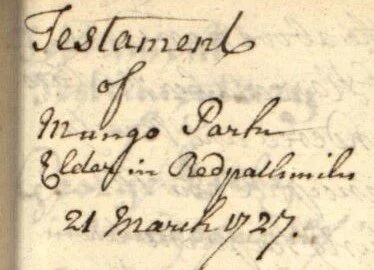 Testament
of
Mungo Park
Elder in Redpathmiln
21 March 1727.